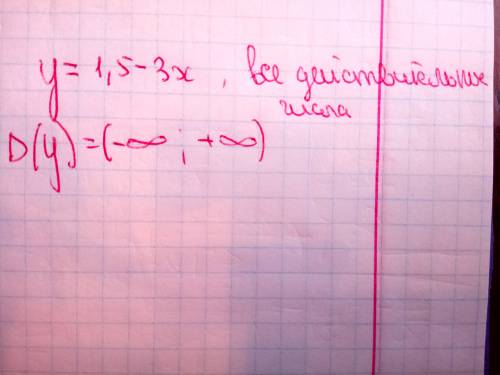 y = 1,5 - 3x , все действительные
числа
D(y) = (-∞ ; +∞)